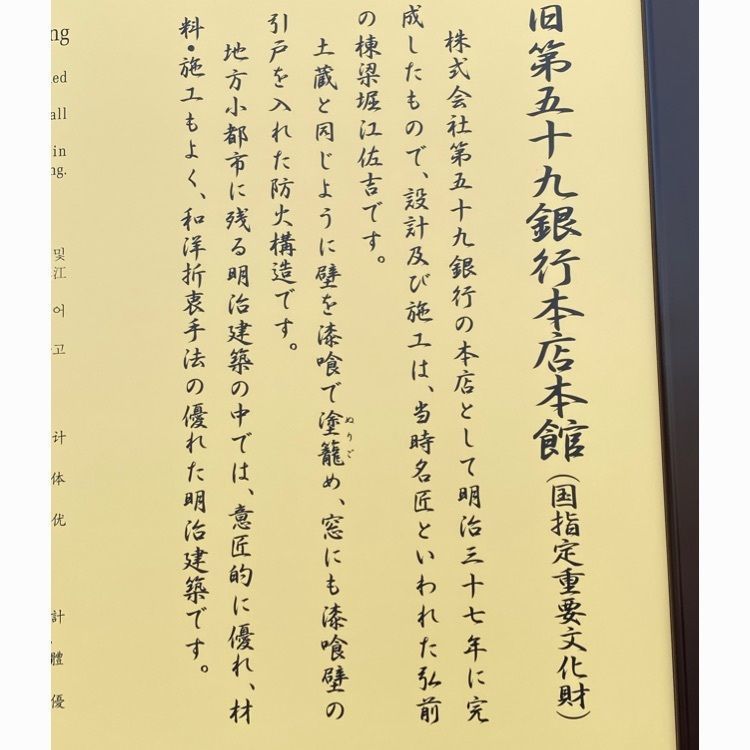 旧第五十九銀行本店本館(国指定重要文化財)
株式会社第五十九銀行の本店として明治三十七年に完
成したもので、設計及び施工は、当時名匠といわれた弘前
の棟梁堀江佐吉です。
土蔵と同じように壁を漆喰で塗籠め、窓にも漆喰壁の
ぬりご
引戸を入れた防火構造です。
地方小都市に残る明治建築の中では、意匠的に優れ、材
料・施工もよく、和洋折衷手法の優れた明治建築です。
ng
ed
all
in
ng.
및
江
어
고
计
体
优
計
體
優